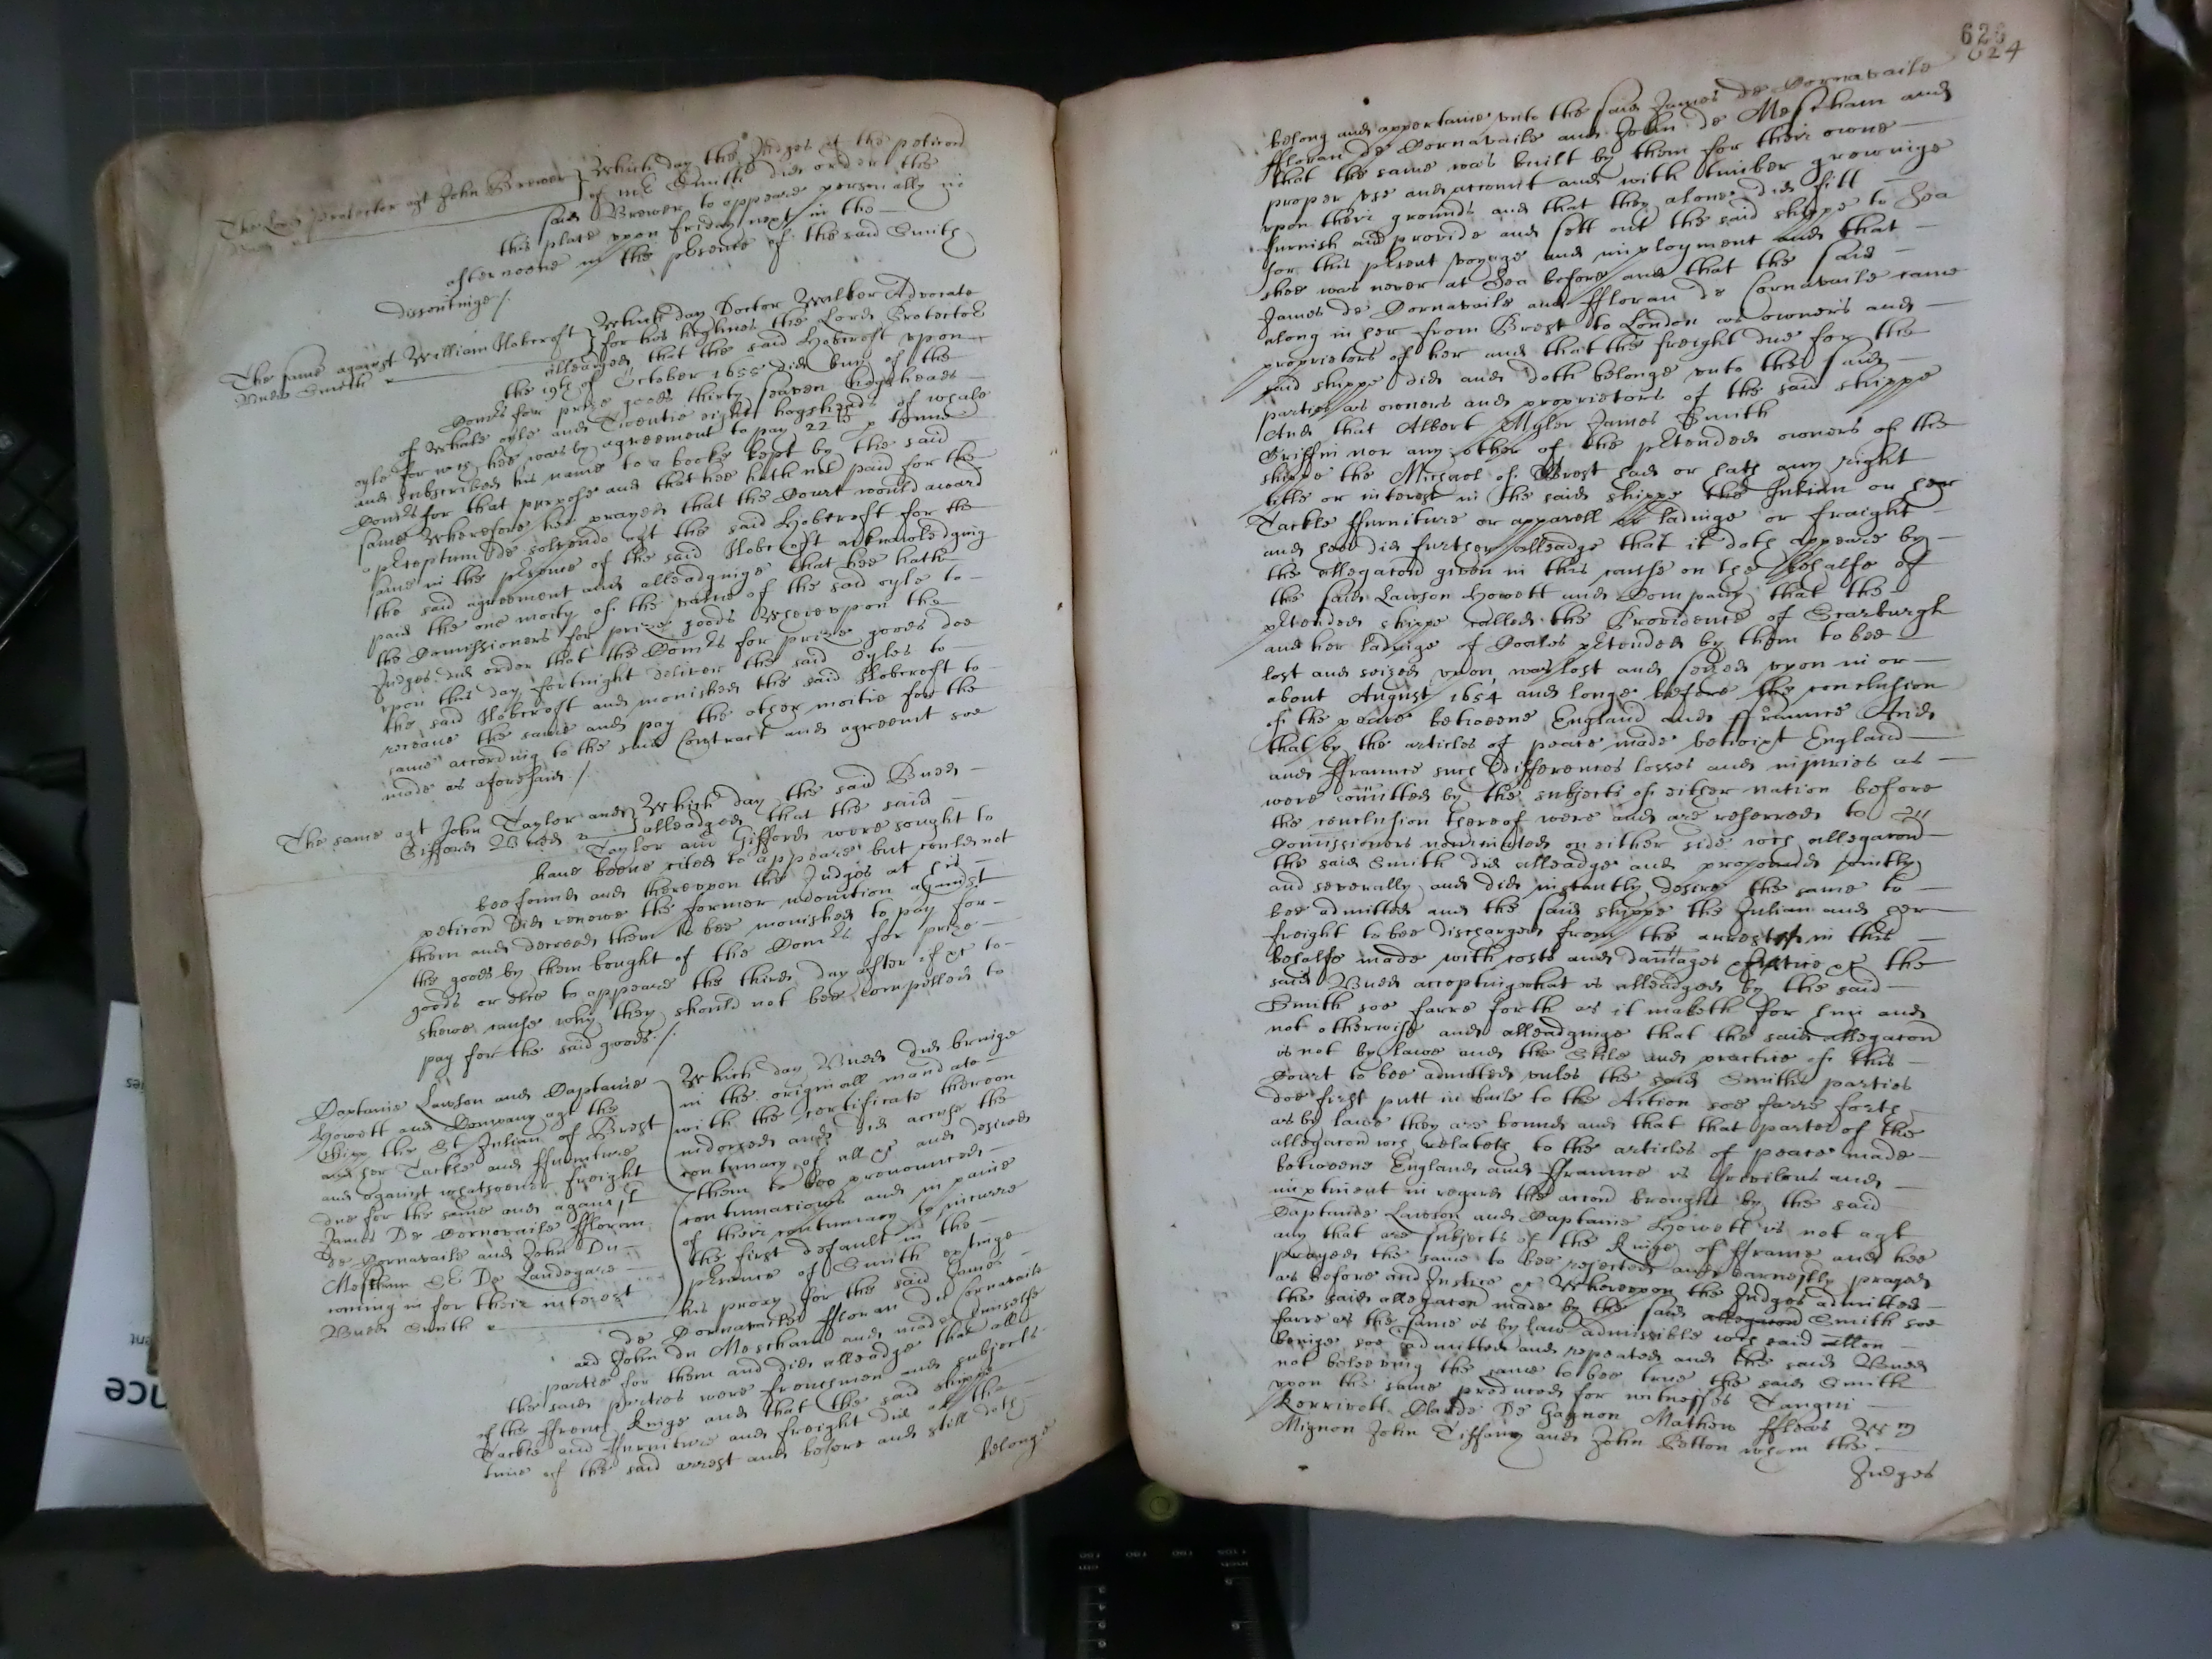 The Lord Protector agt John Brewer
Which day the Judges at the peticon
of mr Smith did order the
said Brewer to appeare personally in
this place upon friday next in the
afternoone in the presence of the said Smith
dissentinge /.
The same against William Hobcroft
Budd Smith
Which day Doctor Walker Advocate
for his highnes the Lord Protector
alleadged that the said Hobcroft upon
the 19th of October 1655 did buy of the
Comrs for prize goods thirty seaven hogsheads
of whale oyle and Twentie eight hogsheads of whale
oyle for wch hee was by agreement to pay 22 lb p tonne
and subscribed his name to a booke kept by the said
Comrs for that purpose and that hee hath not paid for the
same Wherefore hee prayed that the Court would award
a preceptum de solvendo agt the said Hobcroft for the
same in the presence of the said Hobcroft acknowledging
the said agreement and alleadginge that hee hath
paid the one moity of the value of the said oyle to
the Comissioners for prize goods Whereupon the
Judges did order that the Comrs for prize goods doe
upon this day fortnight deliver the said oyles to
the said Hobcroft and monished the said Hobcroft to
receave the same and pay the other moitie for the
same according to the said Contract and agreemt soe
made as aforesaid /
The same agt John Taylor and
Gifford Budd
Which day the said Budd
alleadged that the said
Taylor and Gifford were sought to
have beene cited to appeare but could not
bee found and thereupon the Judges at his
peticon did renewe the former monition against
them and decreed them to bee monished to pay for
the goods by them bought of the Comrs for prize
goods or else to appeare the third day after if &c to
shewe cause why they should not bee compelled to
pay for the said goods /.
Captaine Lawson and Captaine
Howett and Company agt the
Shipp the St Julian of Brest
and her Tackle and ffurniture
and against whatsoever freight
due for the same and against
James De Cornavaile ffloran
De Cornavaile and John Du
Mescham De Landegare
coming in for their interest
Budd Smith
Which day Budd did bringe
in the originall mandate
with the certificate thereon
indorsed and did accuse the
contumacy of all &c and desired
them to bee pronounced
contumacious and in paine
of their contumacy to incurre
the first default in the
presence of Smith exhibitinge
his proxy for the said James
de Cornavaile ffloran de Cornavaile
and John du Mescham and made himselfe
partie for them and did alleadge that all
the said parties were frenchmen and subjects
of the ffrench Kinge and that the said shippe
Tackle and ffurniture and freight did at the
time of the said arrest and before and still doth
belonge
626
624
belong and appertaine unto the said James de Cornavaile
ffloran de Cornavaile and John de Mescham and
that the same was built by them for their owne
proper use and account and with timber growinge
upon their grounds and that they alone did fitt
furnish and provide and sett out the said shippe to Sea
for this present voyage and imployment and that
shee was never at Sea before and that the said
James de Cornavaile and ffloran de Cornavaile came
along in her from Brest to London as owners and
proprietors of her and that the freight due for the
said shippe did and doth belonge unto the said
parties as owners and proprietors of the said shippe
And that Albert Myler James Smith
Griffin nor any other of the pretended owners of the
shippe the Michael of Brest had or hath any right
title or interest in the said shippe the Julian or her
Tackle ffurniture or apparell or ladinge or fraight
and hee did further alleadge that it doth appeare by
the allegacon given in this cause on the behalfe of
the said Lawson Howett and Company that the
pretended shippe called the Providence of Scarburgh
and her ladinge of Coales pretended by them to bee
lost and seized upon was lost and seized upon in or
about August 1654 and longe before the conclusion
of the peace betweene England and ffrance And
that by the articles of peace made betwixt England
and ffrance such differences losses and injuries as
were comitted by the subjects of either nation before
the conclusion thereof were and are referred to
Comissioners nominated on either side wch allegacon
the said Smith did alleadge and propound jointly
and severally and did instantly desire the same to
bee admitted and the said shippe the Julian and her
freight to bee discharged from the arrest in this
behalfe made with costs and damages Justice &c the
said Budd accepting what is alleadged by the said
Smith soe farre forth as it maketh for him and
not otherwise and alleadginge that the said allegacon
is not by lawe and the Stile and practice of this
Court to bee admitted unles the said Smiths parties
doe first putt in baile to the Action soe farre forth
as by lawe they are bound and that that parte of the
allegacon wch relateth to the articles of peace made
betweene England and ffrance is frivilous and
impertinent in regard the accon brought by the said
Captaine Lawson and Captaine Howett is not agt
any that are subjects of the Kinge of ffrance and hee
prayed the same to bee rejected and earnestly prayed
as before and Justice &c Whereupon the Judges admitted
the said allegacon made by the said allegacon Smith soe
farre as the same is by law admissible wch said allon
beinge soe admitted and repeated and the said Budd
not beleeving the same to bee true the said Smith
upon the same produced for witnesses Tangui
Kerrivott Claude De Gagnon Mathew ffleas Wm
Mignon John Tiffany and John Cotton whom the
Judges